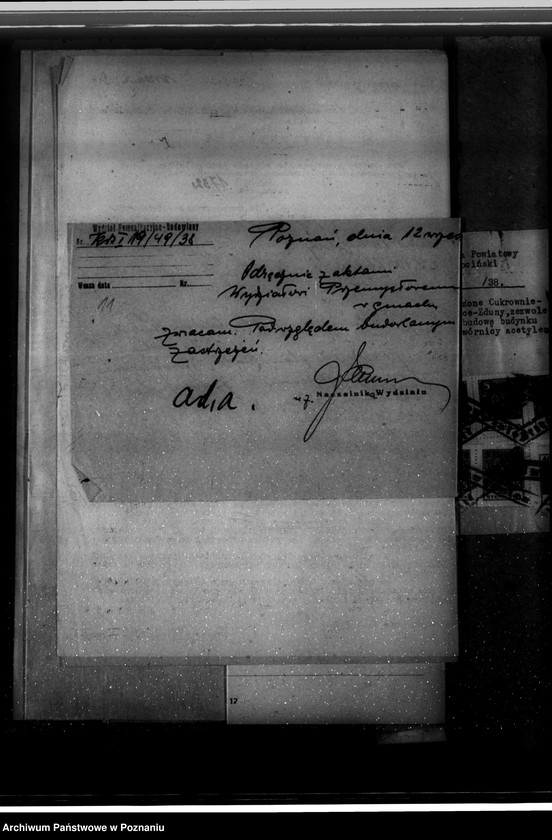 Wydział Komunikacyjno-Budowlany
Nr. KB I 19/49/38
Wasza data Nr.
11
Poznań, dnia 12
Odręcznie z aktami
Wydziałowi Przemysłowemu
w gmachu
zwracam. Pod względem budowlanym
zastrzeżeń.
ad.a.
Naczelnik Wydziału
Powiatowy
/38.
Cukrownie-
ce-Zduny, zezwole
budowę budynku
wórnicy acetylen
17
Archiwum Państwowe w Poznaniu